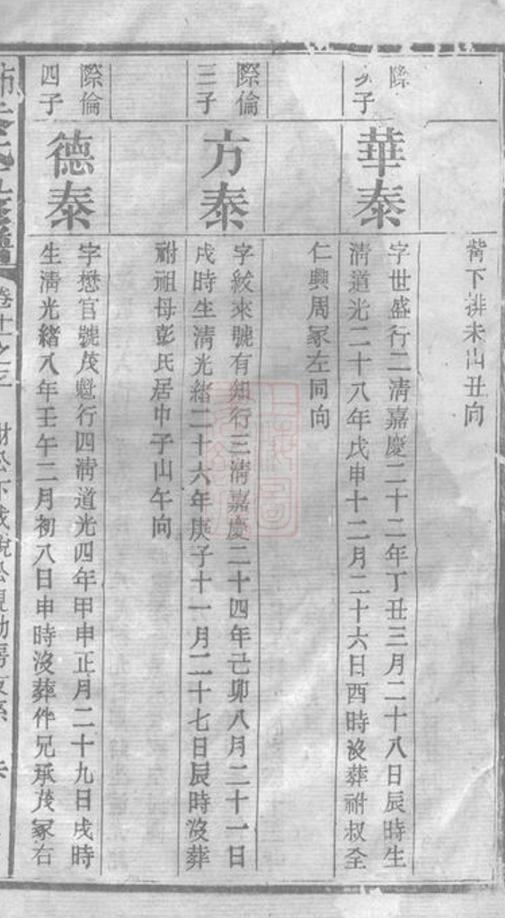 背下排未山丑向
際
子
華泰
字世盛行二清嘉慶二十二年丁丑三月二十八日辰時生
清道光二十八年戊申十二月二十六日酉時沒葬祔叔全
仁興周冢左同向
際倫
三子
方泰
字紋來號有組行三清嘉慶二十四年己卯八月二十一日
戌時生清光緒二十六年庚子十一月二十七日辰時沒葬
祔祖母彭氏居中子山午向
際倫
四子
德泰
字懋官號茂魁行四清道光四年甲申正月二十九日戌時
生清光緒八年壬午二月初八日申時沒葬伴兄承茂冢右
卷十之三